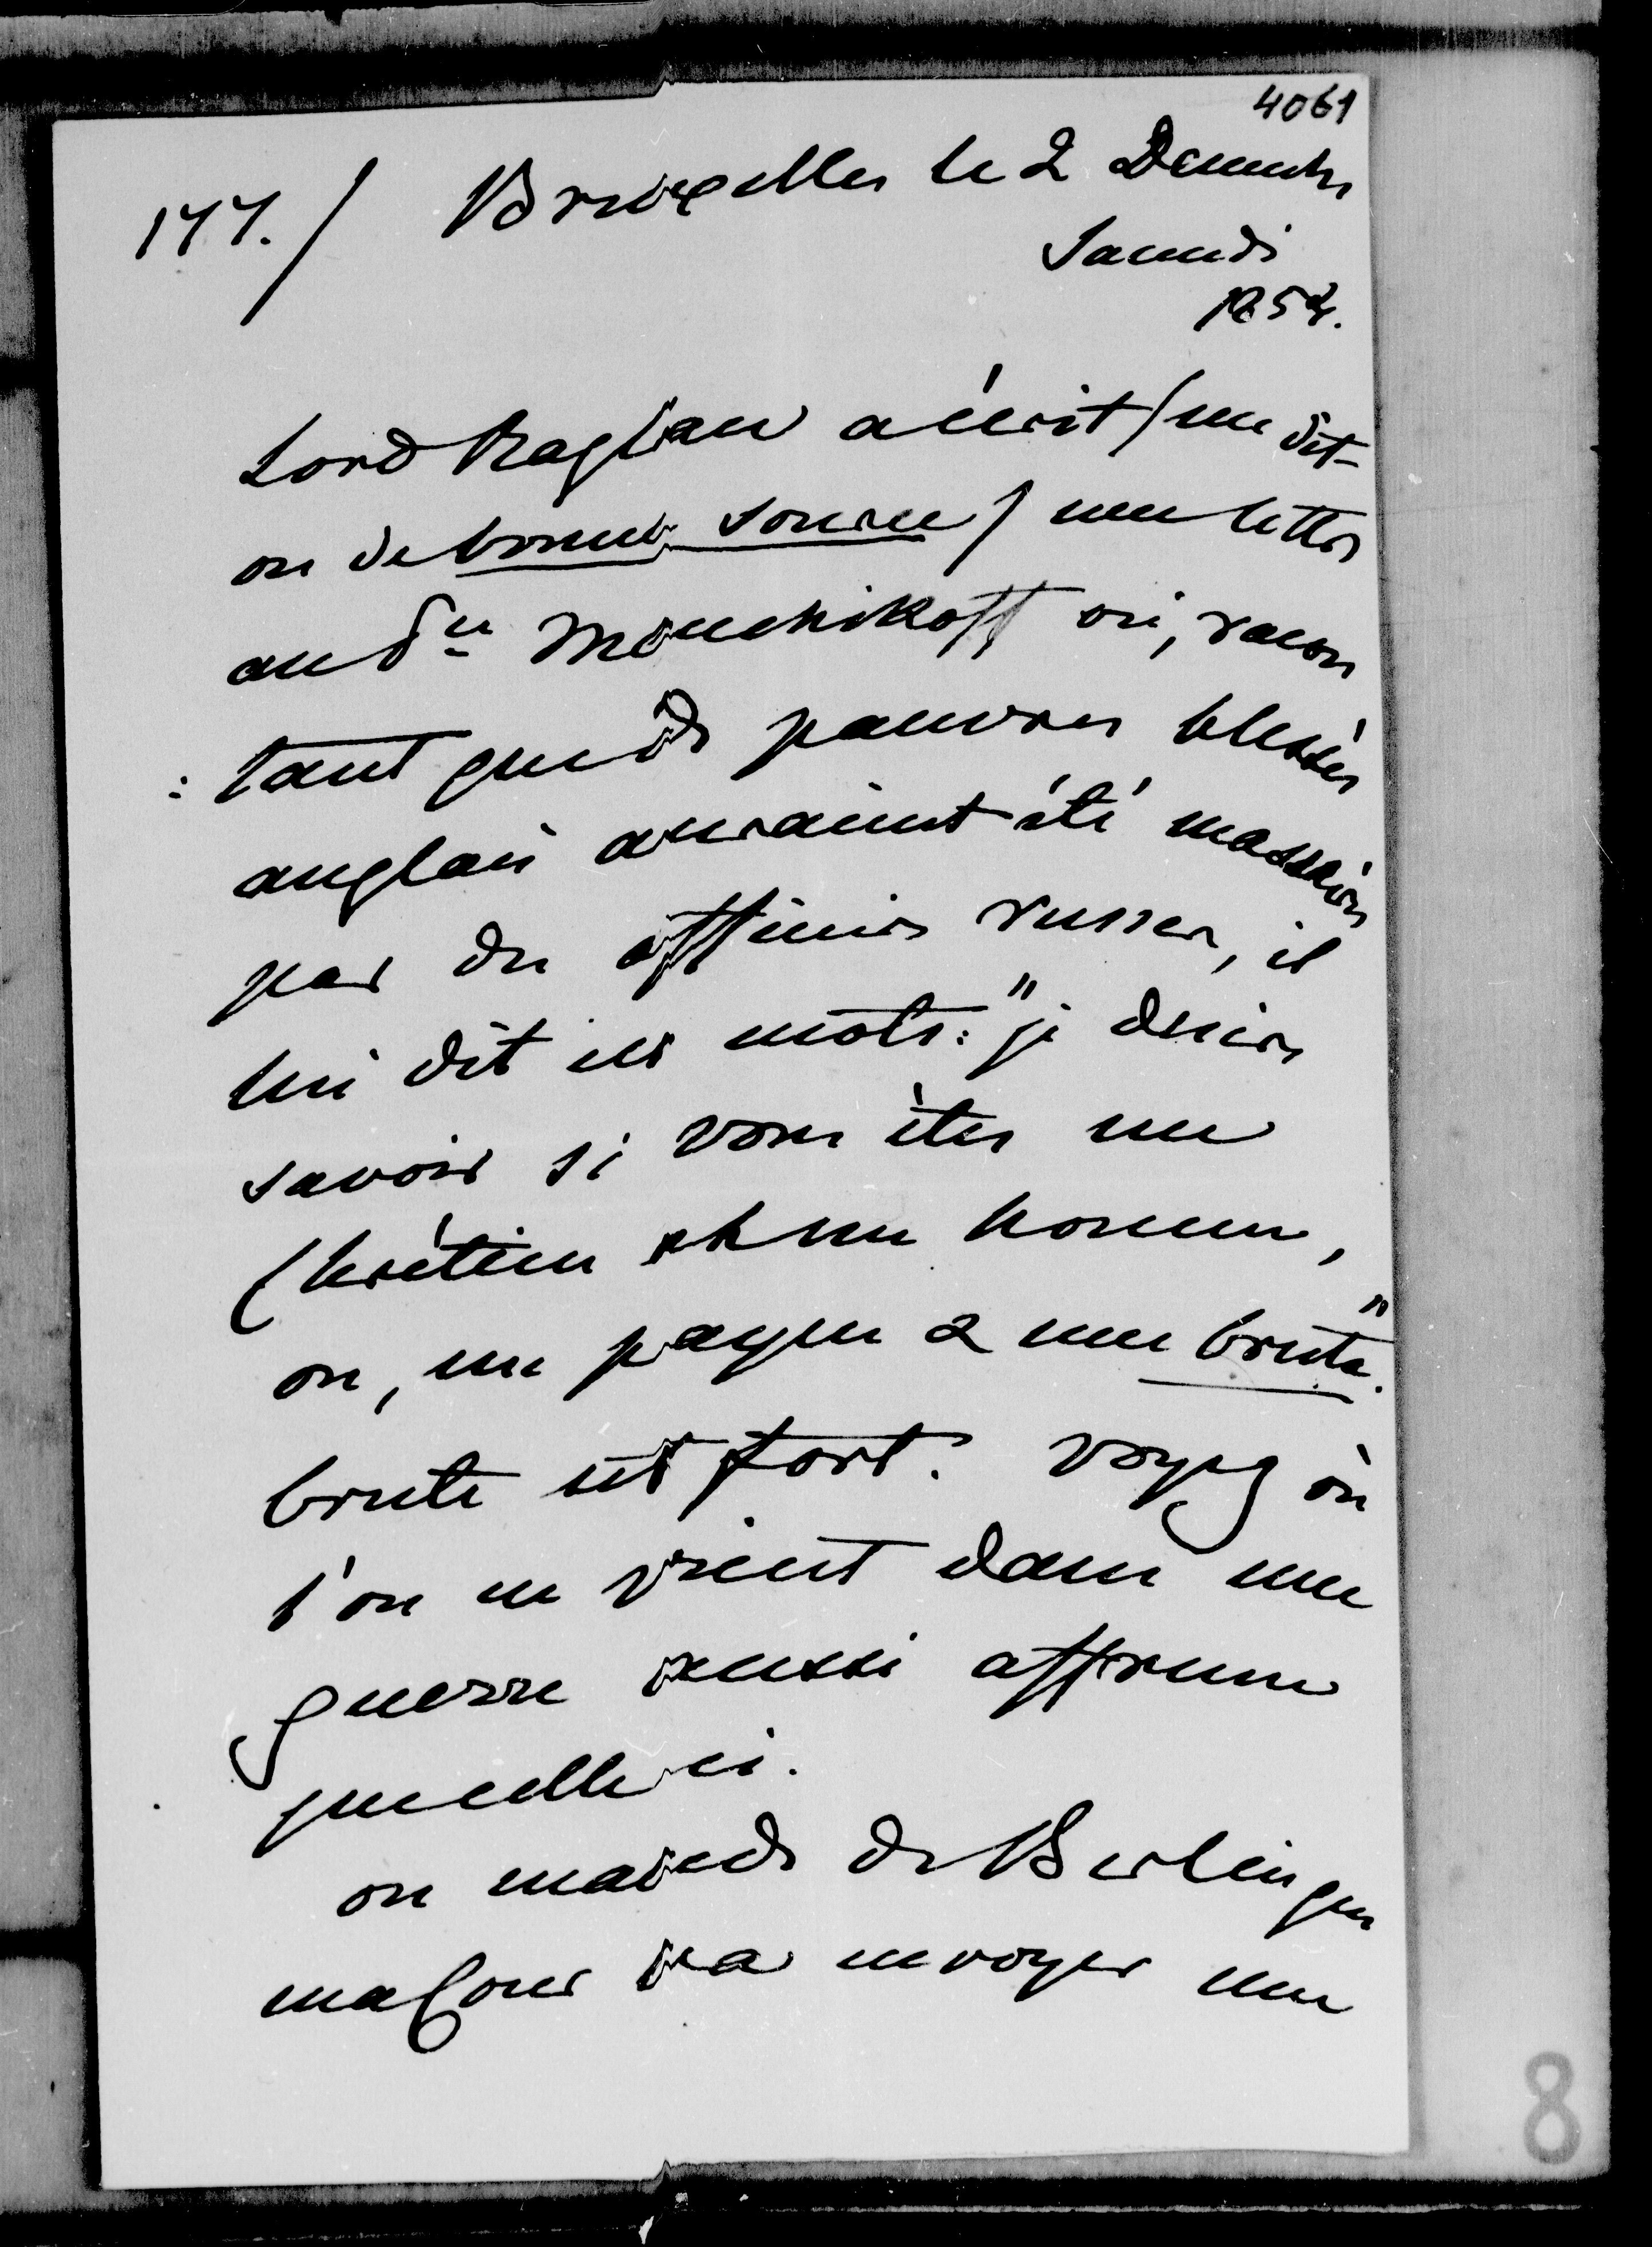 4061
177./ Bruxelles le 2 Decembre
Samedi
1854.
Lord Raglan a écrit (me dit-
on de bonne source) une lettre
au Pce Menchikoff où, racon
: tant que de pauvres blessés
anglais auraient été massacrés
par des officiers russes, il
lui dit ces mots : "je desire
savoir si vous êtes un
chrétien & un homme,
ou, un payen & une brute."
brute est fort. voyez où
l'on en vient dans une
guerre aussi affreuse
que celle ci.
on mande de Berlin que
ma Cour va envoyer une
8